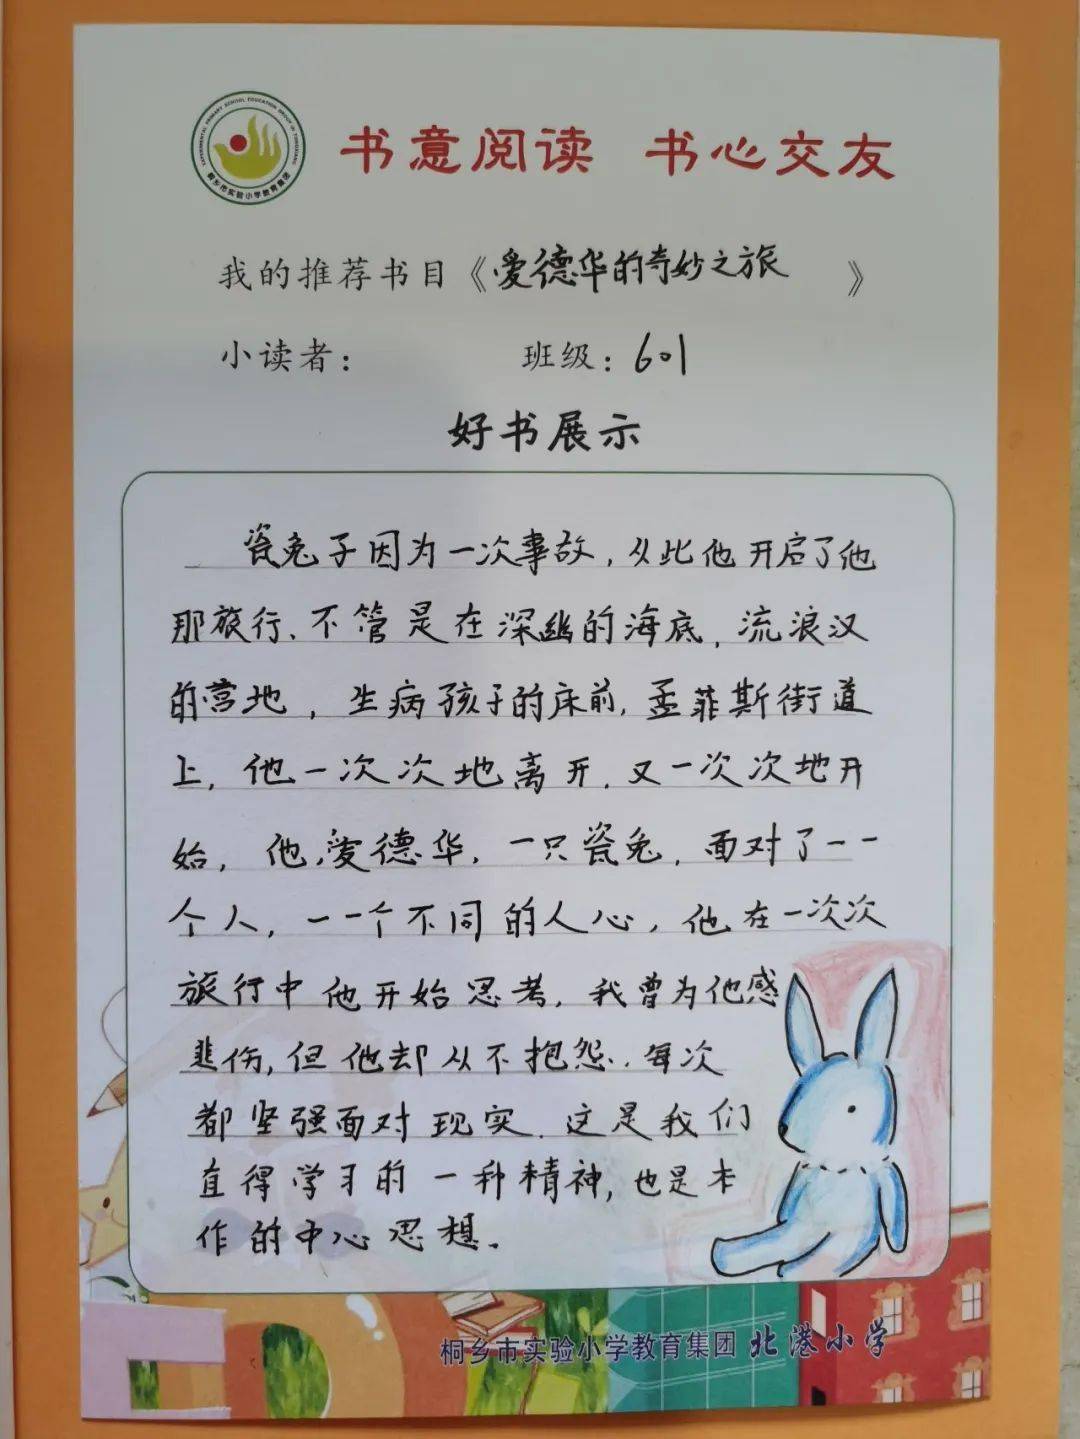 EXPERIMENTAL PRIMARY SCHOOL EDUCATION GROUP IN TONGXIANG
桐乡市实验小学教育集团
书意阅读 书心交友
我的推荐书目《爱德华的奇妙之旅》
小读者： 班级：601
好书展示
瓷兔子因为一次事故，从此他开启了他
那旅行、不管是在深幽的海底，流浪汉
的营地，生病孩子的床前，孟菲斯街道
上，他一次次地离开，又一次次地开
始，他，爱德华，一只瓷兔，面对了一一
个人，一一个不同的人心，他在一次次
旅行中他开始思考，我曾为他感
悲伤，但他却从不抱怨，每次
都坚强面对现实．这是我们
直得学习的一种精神，也是本
作的中心思想。
桐乡市实验小学教育集团 北港小学